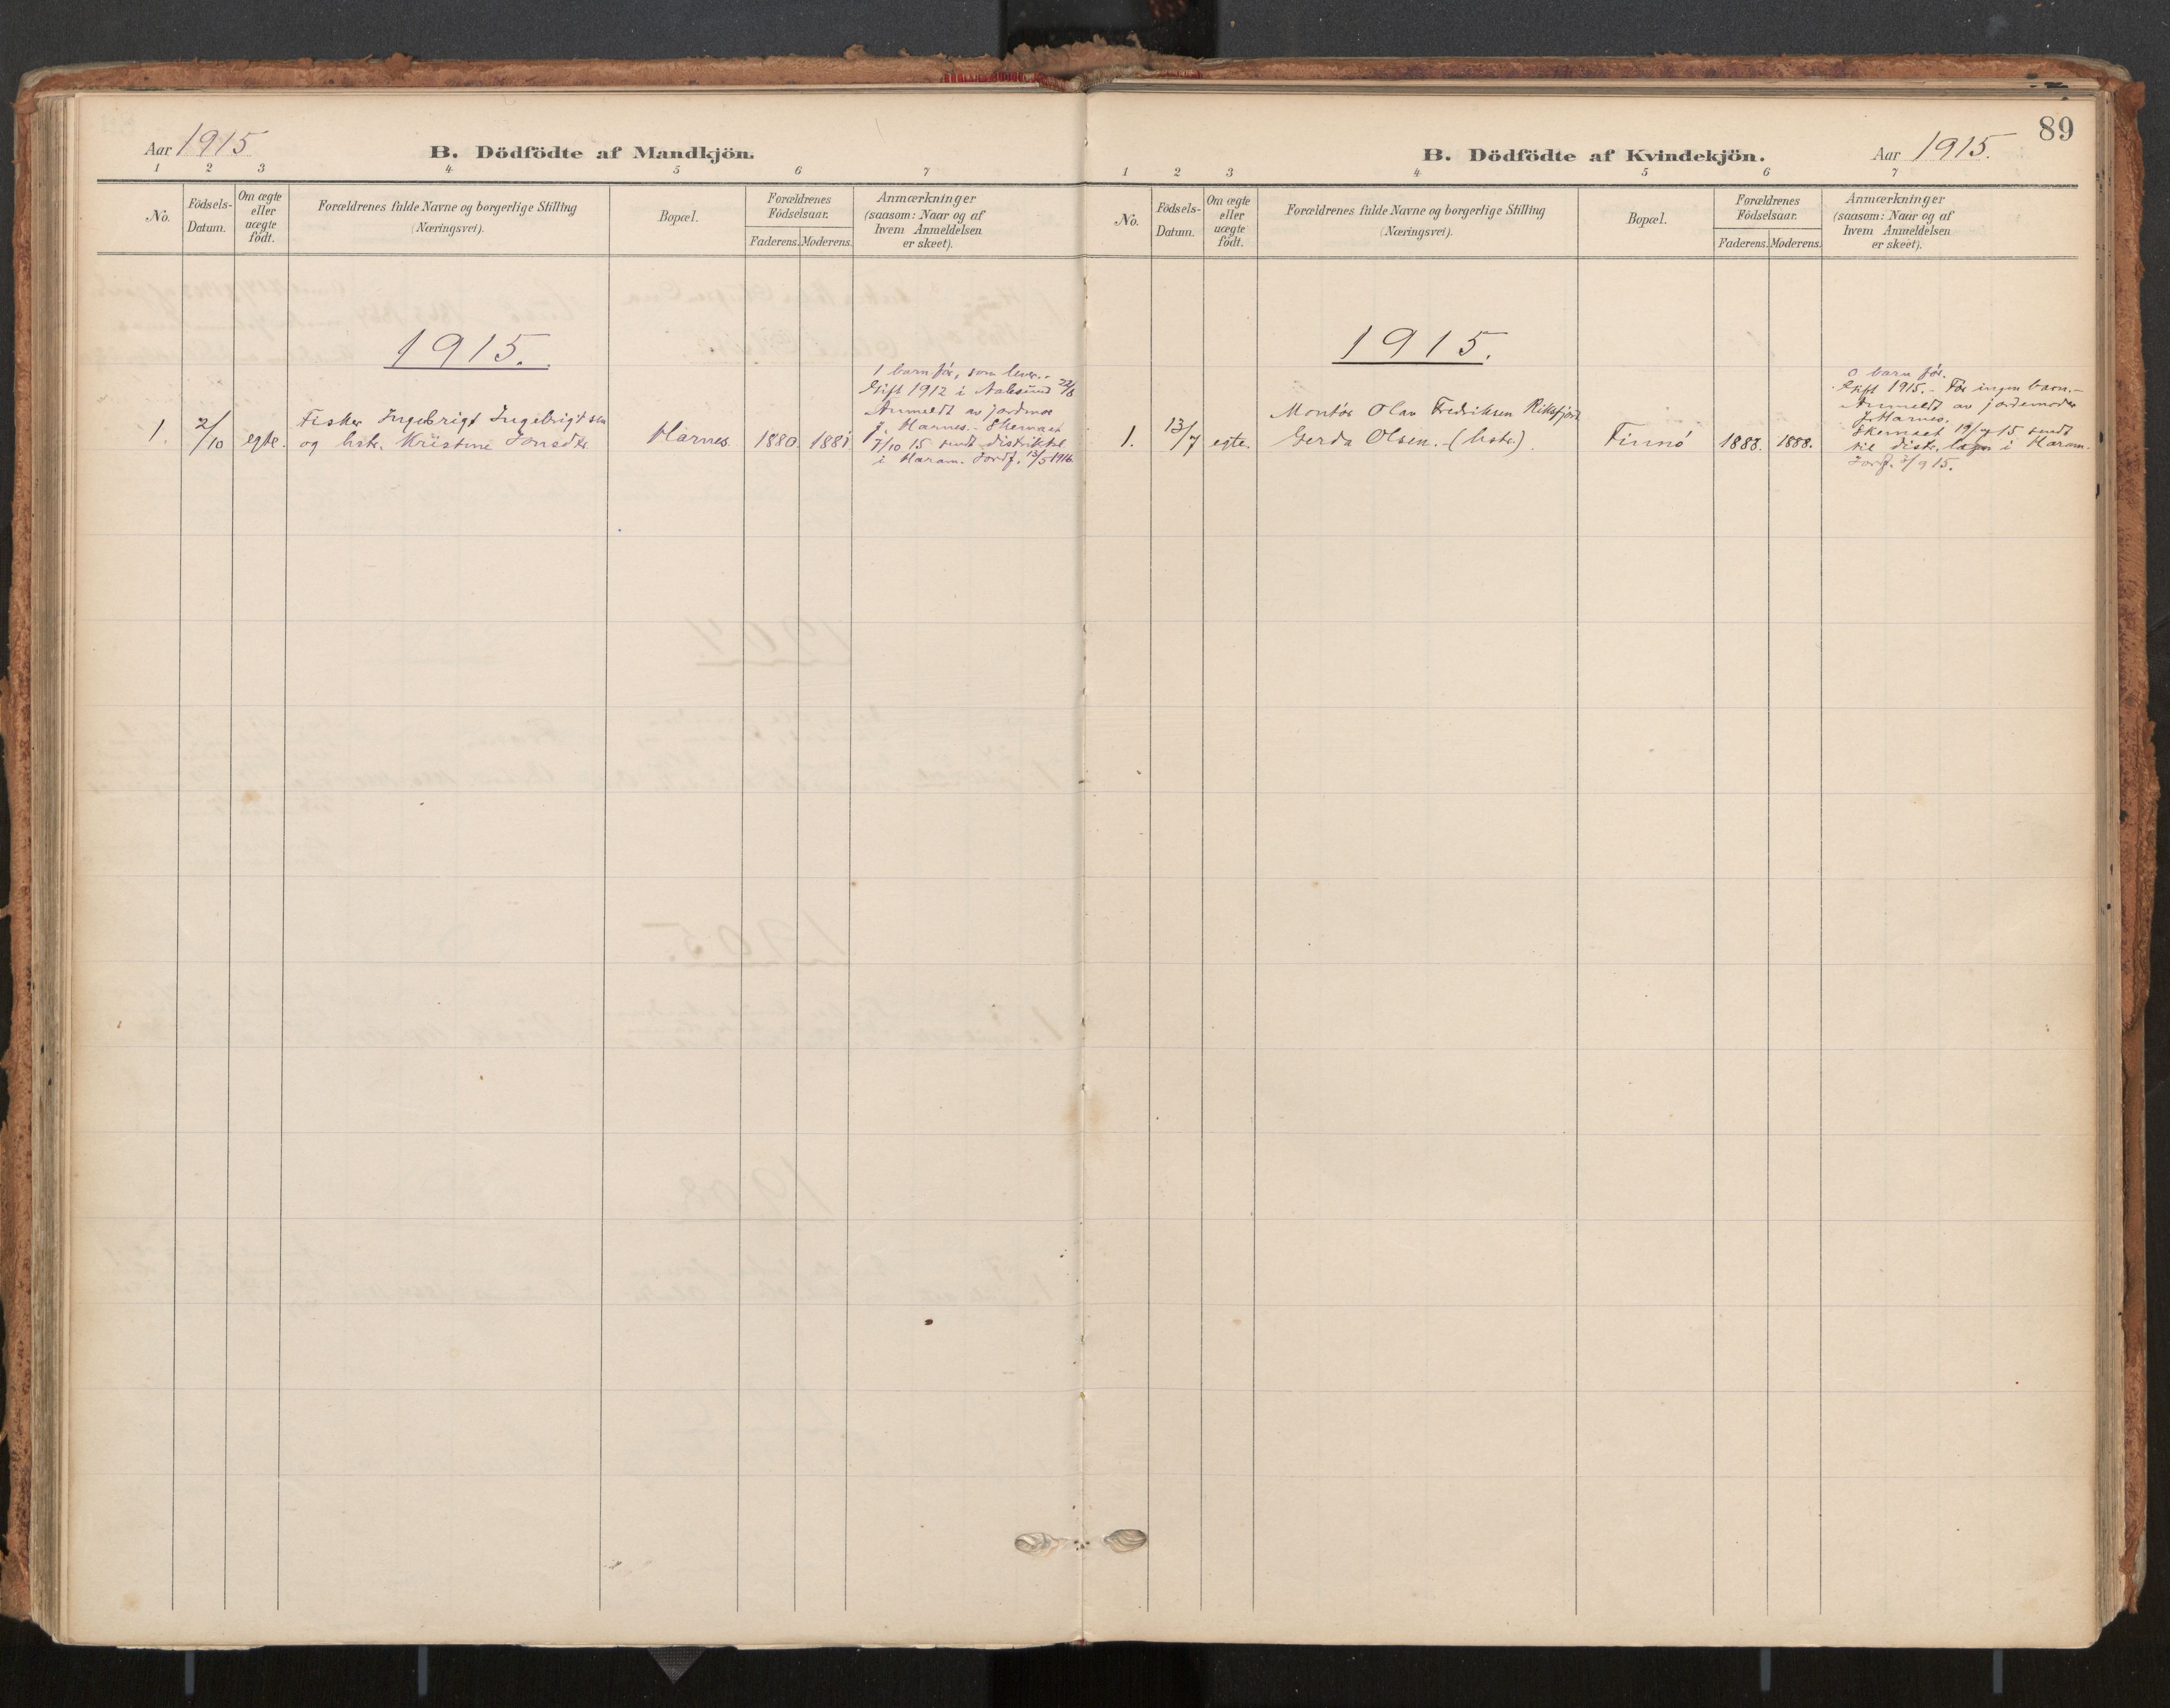 Aar 1915
B. Dödfödte af Mandkjön.
1 2 3 4 5 6 7
No.
Födsels-
Datum.
Om ægte
eller
uægte
födt.
Forældrenes fulde Navne og borgerlige Stilling
(Næringsvei).
Bopæl.
Forældrenes
Födselsaar.
Faderens. Moderens.
Anmærkninger
(saasom: Naar og af
hvem Anmeldelsen
er skeet).
1915.
1.
2/10
egte.
Fisker Ingebrigt Ingebrigtsen
og hstr. Kristine Jonsdtr
Harnes
1880.
1881
1 barn før, som lever.-
Gift 1912 i Aalesund 22/8
Anmeldt av jordmor
J. Harnes. Skemaet
7/10 15 sendt distriktsl.
i Haram. Jordf. 13/5 1916
89
B. Dödfödte af Kvindekjön.
Aar 1915.
1 2 3 4 5 6 7
No.
Födsels-
Datum.
Om ægte
eller
uægte
födt.
Forældrenes fulde Navne og borgerlige Stilling
(Næringsvei).
Bopæl.
Forældrenes
Födselsaar.
Faderens. Moderens.
Anmærkninger
(saasom: Naar og af
hvem Anmeldelsen
er skeet).
1915.
1.
13/7
egte.
Montør Olav Fredriksen Riksfjord
Gerda Olsen. (hstr.).
Finnö
1888.
1888.
0 barn før.
Gift 1915. - Før ingen barn.-
Anmeldt av jordemoder
J. Harnes.
Skemaet 19/7 15 sendt
til distr. lægen i Haram.
Jordf. 3/9 15.